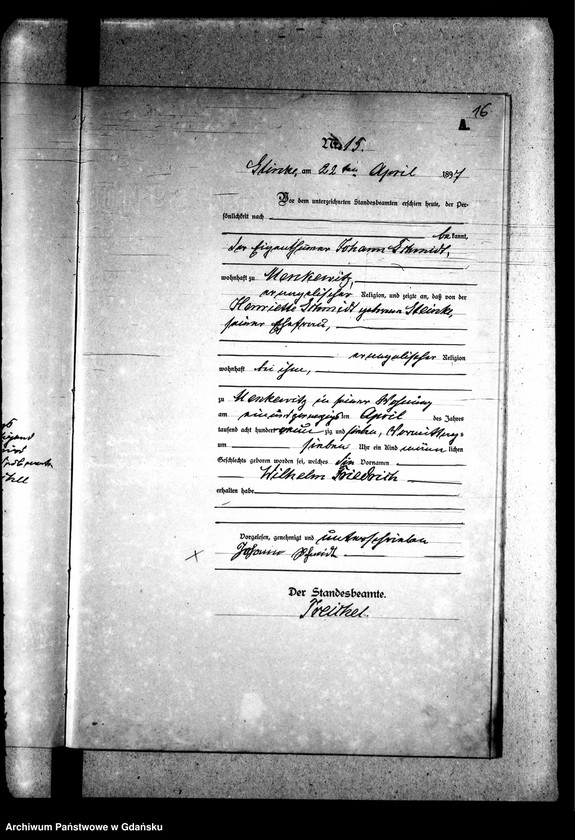 16
A.
Nr. 15.
am 22 ten April 1897
Vor dem unterzeichneten Standesbeamten erschien heute, der Per-
sönlichkeit nach
bekannt,
der Eigenthümer Johann Schmidt,
wohnhaft zu Menkewitz,
evangelischer Religion, und zeigte an, daß von der
Henriette Schmidt geborene Steincke,
seiner Ehefrau,
evangelischer Religion
wohnhaft bei ihm,
zu Menkewitz in seiner Wohnung
am einundzwanzigsten April des Jahres
tausend acht hundert neunzig und sieben, Vormittags
um sieben Uhr ein Kind männlichen
Geschlechts geboren worden sei, welches die Vornamen
Wilhelm Friedrich
erhalten habe.
Vorgelesen, genehmigt und unterschrieben
Johann Schmidt
Der Standesbeamte.
Archiwum Państwowe w Gdańsku